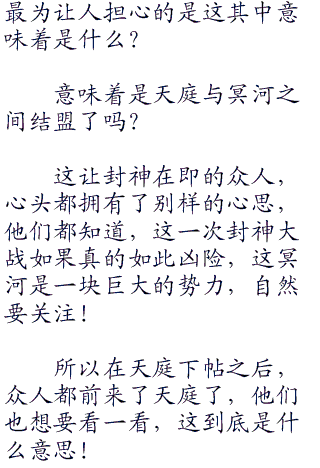 最为让人担心的是这其中意
味着是什么？
意味着是天庭与冥河之
间结盟了吗？
这让封神在即的众人，
心头都拥有了别样的心思，
他们都知道，这一次封神大
战如果真的如此凶险，这冥
河是一块巨大的势力，自然
要关注！
所以在天庭下帖之后，
众人都前来了天庭了，他们
也想要看一看，这到底是什
么意思！